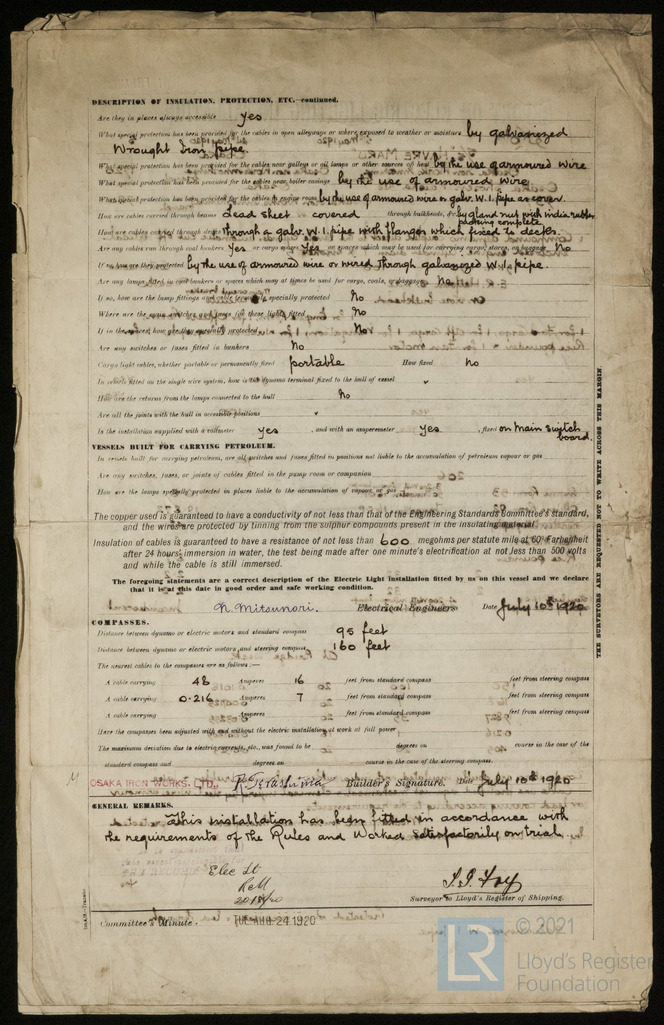 DESCRIPTION OF INSULATION, PROTECTION, ETC.—continued.
Are they in places always accessible yes
What special protection has been provided for the cables in open alleyways or where exposed to weather or moisture by galvanized
Wrought Iron pipe.
What special protection has been provided for the cables near galleys or oil lamps or other sources of heat by the use of armoured wire
What special protection has been provided for the cables near boiler casings by the use of armoured wire
What special protection has been provided for the cables in engine room by the use of armoured wire or galv. W.I. pipe as cover.
How are cables carried through beams Lead sheet covered through bulkheads, &c. by gland nut with india rubber
packing complete
How are cables carried through decks through a galv. W.I. pipe with flanges which fixed to decks.
Are any cables run through coal bunkers Yes or cargo spaces Yes or spaces which may be used for carrying cargo, stores, or baggage No
If so, how are they protected by the use of armoured wire or wired through galvanized W.I. pipe.
Are any lamps fitted in coal bunkers or spaces which may at times be used for cargo, coals, or baggage No
If so, how are the lamp fittings and cable terminals specially protected No
Where are the main switches and fuses for these lights fitted No
If in the spaces, how are they specially protected No
Are any switches or fuses fitted in bunkers No
Cargo light cables, whether portable or permanently fixed portable How fixed no
In vessels fitted on the single wire system, how is the dynamo terminal fixed to the hull of vessel
How are the returns from the lamps connected to the hull No
Are all the joints with the hull in accessible positions
Is the installation supplied with a voltmeter yes , and with an amperemeter yes , fixed on main switch
board.
VESSELS BUILT FOR CARRYING PETROLEUM.
In vessels built for carrying petroleum, are all switches and fuses fitted in positions not liable to the accumulation of petroleum vapour or gas
Are any switches, fuses, or joints of cables fitted in the pump room or companion
How are the lamps specially protected in places liable to the accumulation of vapour or gas
The copper used is guaranteed to have a conductivity of not less than that of the Engineering Standards Committee's standard,
and the wires are protected by tinning from the sulphur compounds present in the insulating material.
Insulation of cables is guaranteed to have a resistance of not less than 600 megohms per statute mile at 60° Farhenheit
after 24 hours' immersion in water, the test being made after one minute's electrification at not less than 500 volts
and while the cable is still immersed.
The foregoing statements are a correct description of the Electric Light installation fitted by us on this vessel and we declare
that it is at this date in good order and safe working condition.
N. Mitsunari. Electrical Engineers Date July 10th 1920
COMPASSES.
Distance between dynamo or electric motors and standard compass 95 feet
Distance between dynamo or electric motors and steering compass 160 feet
The nearest cables to the compasses are as follows:—
A cable carrying 48 Amperes 16 feet from standard compass feet from steering compass
A cable carrying 0.216 Amperes 7 feet from standard compass feet from steering compass
A cable carrying Amperes feet from standard compass feet from steering compass
Have the compasses been adjusted with and without the electric installation at work at full power
The maximum deviation due to electric currents, etc., was found to be degrees on course in the case of the
standard compass and degrees on course in the case of the steering compass.
OSAKA IRON WORKS. LTD., R. Terashima Builder's Signature. Date July 10th 1920
GENERAL REMARKS.
This installation has been fitted in accordance with
the requirements of the Rules and Worked satisfactorily on trial.
Elec Lt
J. G. Foy
Surveyor to Lloyd's Register of Shipping.
Committee's Minute. TUE. AUG 24 1920
THE SURVEYORS ARE REQUESTED NOT TO WRITE ACROSS THIS MARGIN.
LR © 2021
Lloyd's Register
Foundation